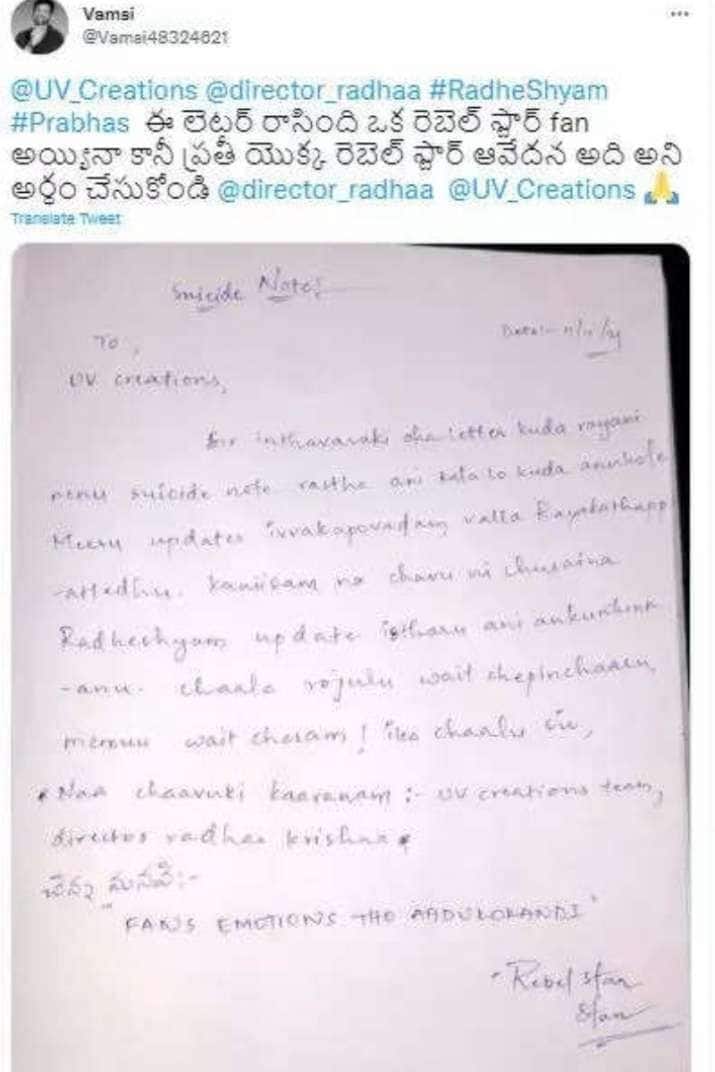 Vamsi
@Vamsi48324621
@UV_Creations @director_radhaa #RadheShyam
#Prabhas ఈ లెటర్ రాసింది ఒక రెబెల్ స్టార్ fan
అయ్యినా కానీ ప్రతీ యొక్క రెబెల్ స్టార్ ఆవేదన అది అని
అర్థం చేసుకోండి @director_radhaa @UV_Creations 🙏
Translate Tweet
Suicide Note:
To,
UV creations,
Sir inthavaraki oka letter kuda rayani
nenu suicide note rastha ani kala lo kuda anukole
Meeru updates ivvakapovadam valla Rayakathapp
-atledhu. kanisam na chavu ni chusaina
Radheshyam update istharu ani ankuntunn
-anu. chaala rojulu wait chepinchaaru,
memuu wait chesam! ika chaalu sir,
* Naa chaavuki kaaranam :- uv creations team,
director radhaa krishna *
చిన్న మనవి:-
"FANS EMOTIONS THO AADUKOKANDI"
- Rebel star